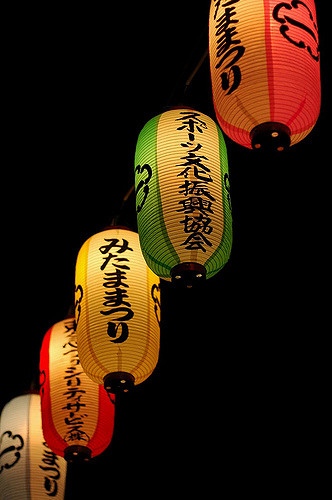 たままつり
スポーツ文化振興協会
みたままつり
ファシリティサービス
まつり